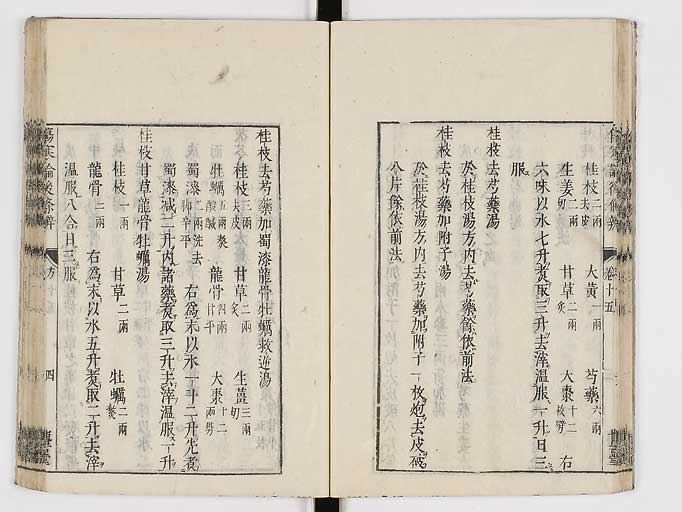 桂枝二兩去皮 大黃一兩 芍藥六兩
生姜二兩切 甘草二兩炙 大棗十二枚劈 右
六味以水七升煮取三升去滓溫服一升日三
服
桂枝去芍藥湯
於桂枝湯方内去芍藥餘依前法
桂枝去芍藥加附子湯
於桂枝湯方内去芍藥加附子一枚炮去皮破
八片餘依前法
卷十五
桂枝去芍藥加蜀漆龍骨牡蠣救逆湯
桂枝三兩去皮 甘草二兩炙 生薑三兩切
牡蠣五兩熬酸鹹 龍骨四兩甘平 大棗十二枚劈
蜀漆三兩洗去脚辛平 右為末以水一斗二升先煮
蜀漆減二升内諸藥煮取三升去滓溫服一升
桂枝甘草龍骨牡蠣湯
桂枝一兩 甘草二兩 牡蠣二兩熬
龍骨二兩 右為末以水五升煮取二升去滓
溫服八合日三服
傷寒論後條辨 方 四